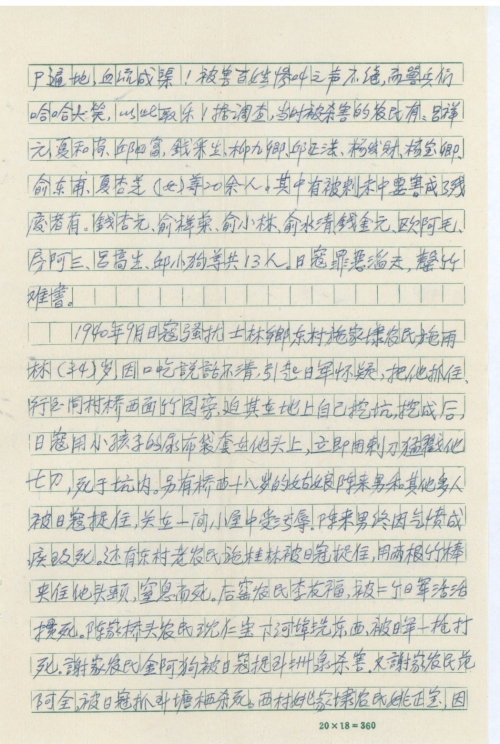 尸遍地,血流成渠!被害百姓惨叫之声不绝,而兽兵们
哈哈大笑,以此取乐!据调查,当时被杀害的农民有:吕祥
元、夏和尚、邱四富、钱采生、柳九卿、邱正法、杨财、杨宝卿、
俞东甫、夏杏芝(女)等20余人。其中有被刺未中要害成了残
废者有。錢杏元、俞祥荣、俞小林、俞水清、錢金元、欧阿毛、
阿三、吕高生、邱小狗等共13人。日寇罪恶滔天,罄竹
难書。
1940年9月日寇骚扰士林鄉东村施家埭农民施雨
林(34)岁,因口吃説話不清,引起日軍怀疑,把他抓住、
行至同村桥西面竹园旁,迫其在地上自己挖坑,挖成后,
日寇用小孩子的尿布袋套在他头上,立即用刺刀猛戳他
七刀,死于坑内。另有桥西十八岁的姑娘陈来男和其他多人
被日寇捉住,关在一间小屋中受辱,陈来男终因气愤成
疾致死。还有东村老农民施桂林被日寇捉住,用两根竹棒
夹住他头颈,窒息而死。后窑农民李友福,被一个日軍活活
摜死。陈家桥头农民沈仁宝下河埠洗东西,被日軍一枪打
死,謝家农民金阿狗被日寇捉到洲泉杀害,大謝家农民范
阿全,被日寇抓到塘栖杀死。西村姚家埭农民姚正宝,因
20×18=360